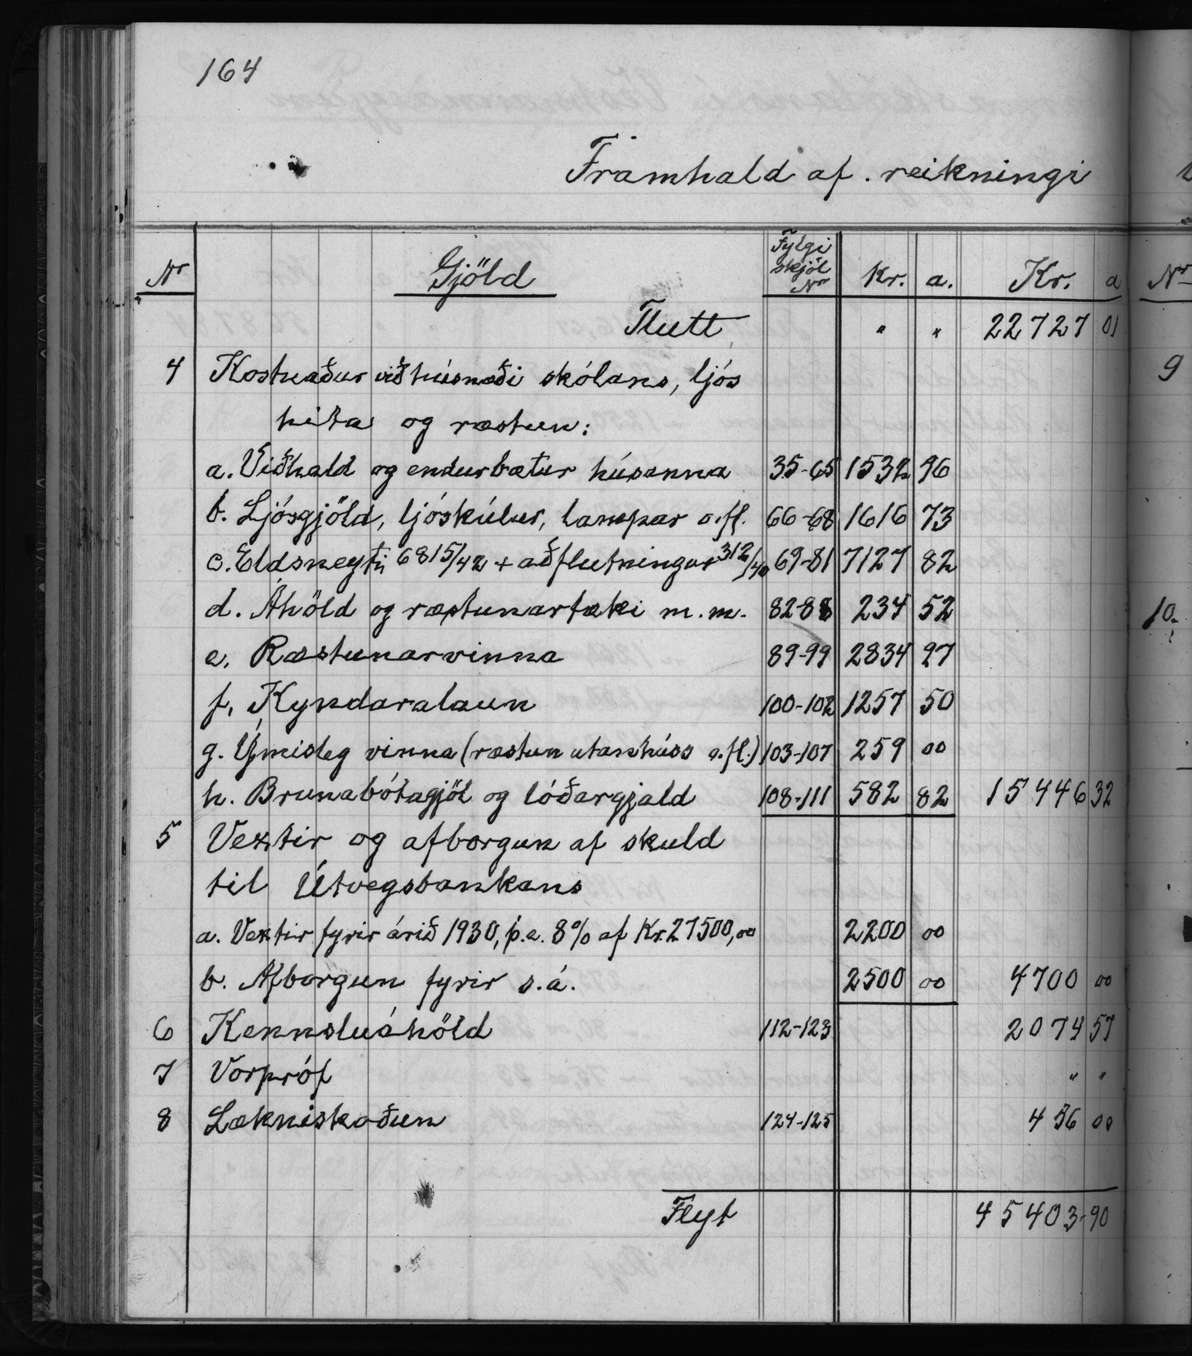 164
Framhald af reikningi
Nr Gjöld Fylgiskjöl Nr Kr. a. Kr. a
Flutt " " 22727 01
4 Kostnaður við húsnæði skólans, ljós
hita og ræstun:
a. Viðhald og endurbætur húsanna 35-65 1532 96
b. Ljósgjöld, ljóskúlur, lampar o.fl. 66-68 1616 73
c. Eldsneyti 6815/42 + aðflutningur 312/40 69-81 7127 82
d. Áhöld og ræstunartæki m.m. 82-88 234 52
e. Ræstunarvinna 89-99 2834 97
f. Kyndaralaun 100-102 1257 50
g. Ýmisleg vinna (ræstun utanhúss o.fl.) 103-107 259 00
h. Brunabótagjöl og lóðargjald 108-111 582 82 15446 32
5 Vextir og afborgun af skuld
til Útvegsbankans
a. Vextir fyrir árið 1930, þ.e. 8% af Kr. 27500,00 2200 00
b. Afborgun fyrir s.á. 2500 00 4700 00
6 Kennsluáhöld 112-123 2074 57
7 Vorpróf " "
8 Lækniskoðun 124-125 456 00
Flyt 45403-90
Nr
9
10.